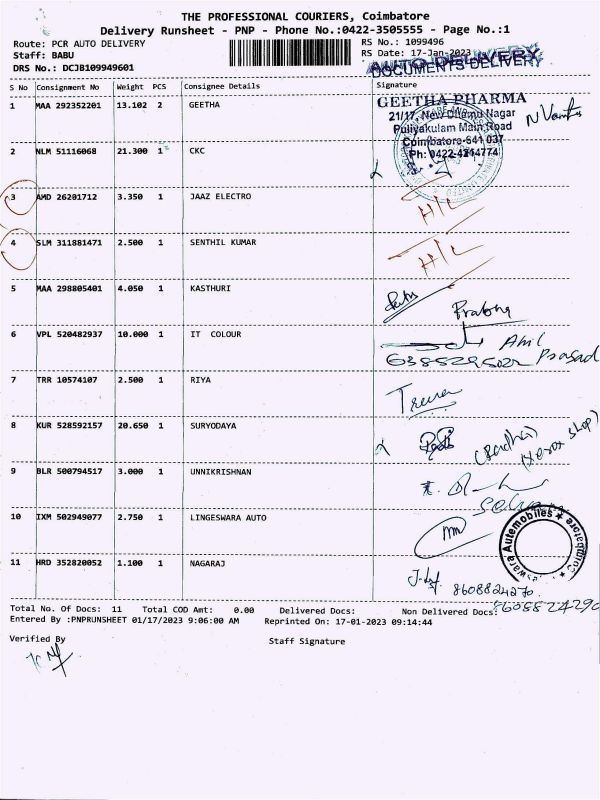 THE PROFESSIONAL COURIERS, Coimbatore
Delivery Runsheet - PNP - Phone No.:0422-3505555 - Page No.:1
Route: PCR AUTO DELIVERY
Staff: BABU
DRS No.: DCJB109949601
RS No.: 1099496
RS Date: 17-Jan-2023
AUTO DELIVERY
DOCUMENTS DELIVERY
S No Consignment No Weight PCS Consignee Details Signature
1 MAA 292352201 13.102 2 GEETHA
GEETHA PHARMA
21/17, New Nagar
Puliyakulam Main Road
Coimbatore-641 037
Ph: 0422-4214774
2 NLM 51116068 21.300 1 CKC
3 AMD 26201712 3.350 1 JAAZ ELECTRO
H/L
4 SLM 311881471 2.500 1 SENTHIL KUMAR
H/L
5 MAA 298805401 4.050 1 KASTHURI
Prabha
6 VPL 520482937 10.000 1 IT COLOUR
Anil
Prasad
7 TRR 10574107 2.500 1 RIYA
8 KUR 528592157 20.650 1 SURYODAYA
(Xerox shop)
9 BLR 500794517 3.000 1 UNNIKRISHNAN
10 IXM 502949077 2.750 1 LINGESWARA AUTO
Automobiles ★ Coimbatore
11 HRD 352820052 1.100 1 NAGARAJ
8608824270
8608824290
Total No. Of Docs: 11 Total COD Amt: 0.00 Delivered Docs: Non Delivered Docs:
Entered By :PNPRUNSHEET 01/17/2023 9:06:00 AM Reprinted On: 17-01-2023 09:14:44
Verified By
Staff Signature